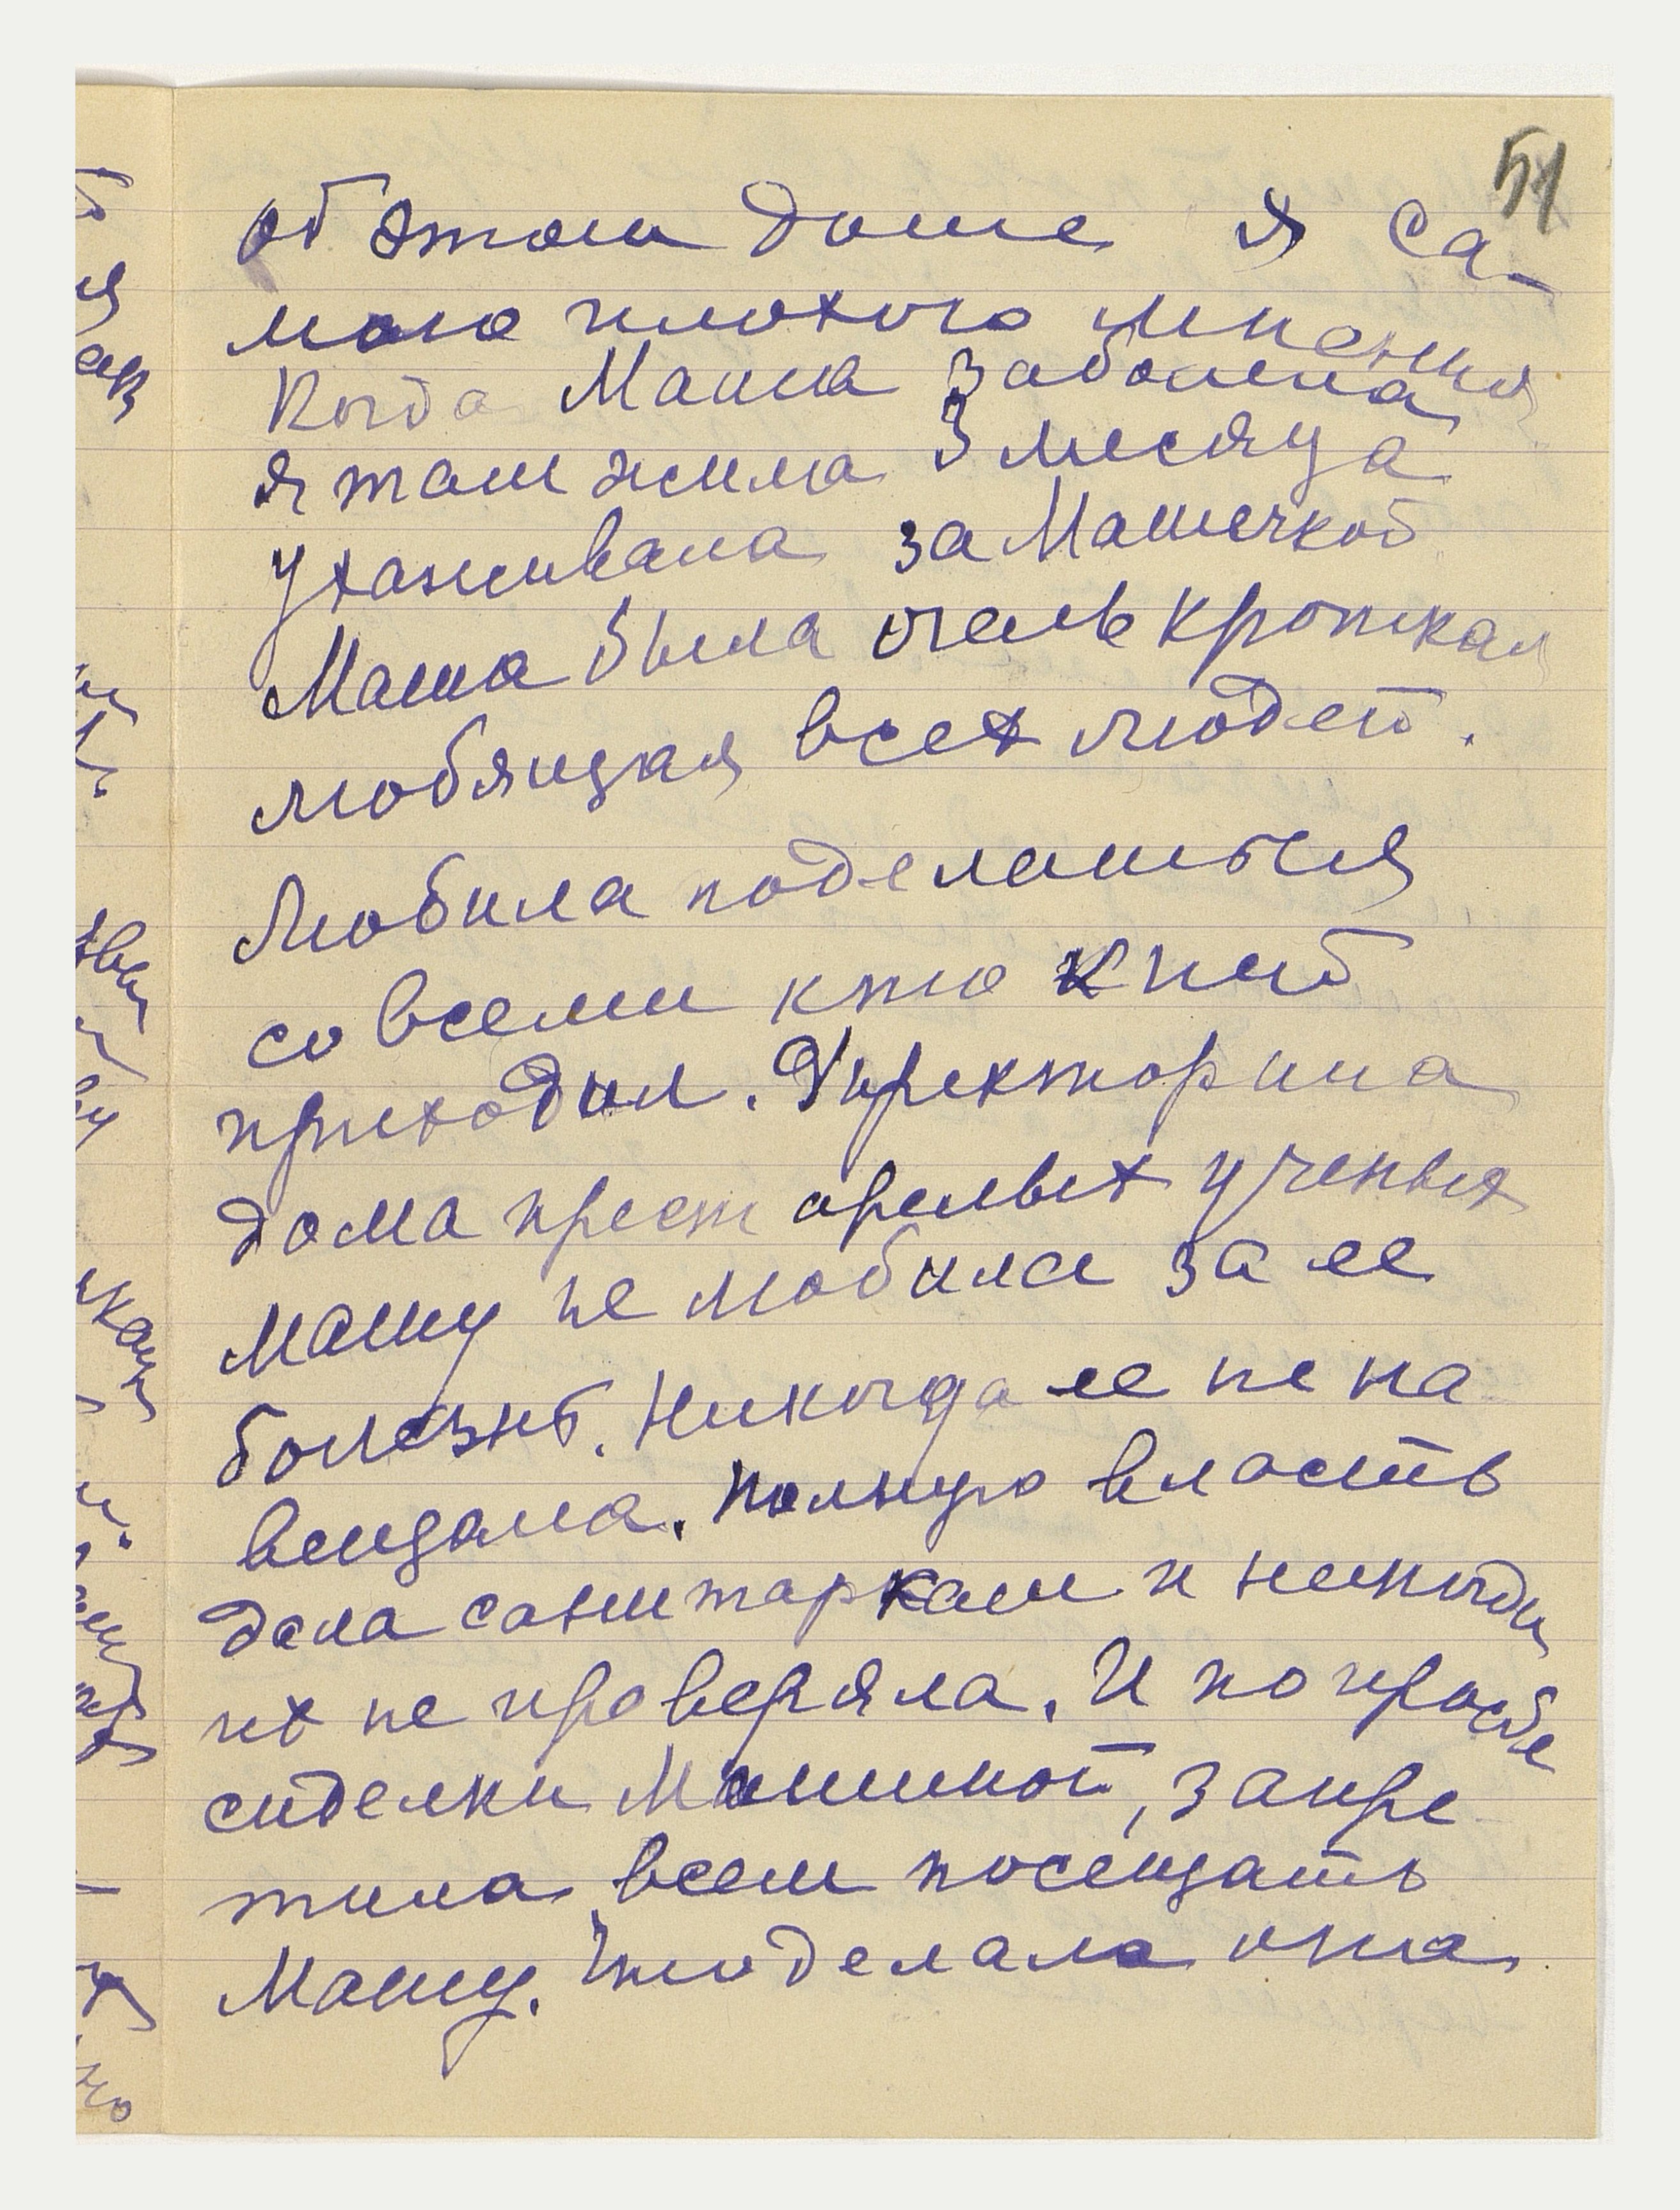 51
об этом доме я са-
мого плохого мнения
Когда Маша заболела
я там жила 3 месяца
ухаживала за Машечкой
Маша была очень кроткая
любящая всех людей.
Любила поделаться
со всеми кто к ней
приходил. Директорша
дома престорелых ученых
Машу не любила за ее
болезнь. Никогда ее не на
вещала. Полную власть
дала санитаркам и никогда
их не проверяла. И по просьбе
сиделки Машиной, запре
тила всем посещать
Машу. Что делала она